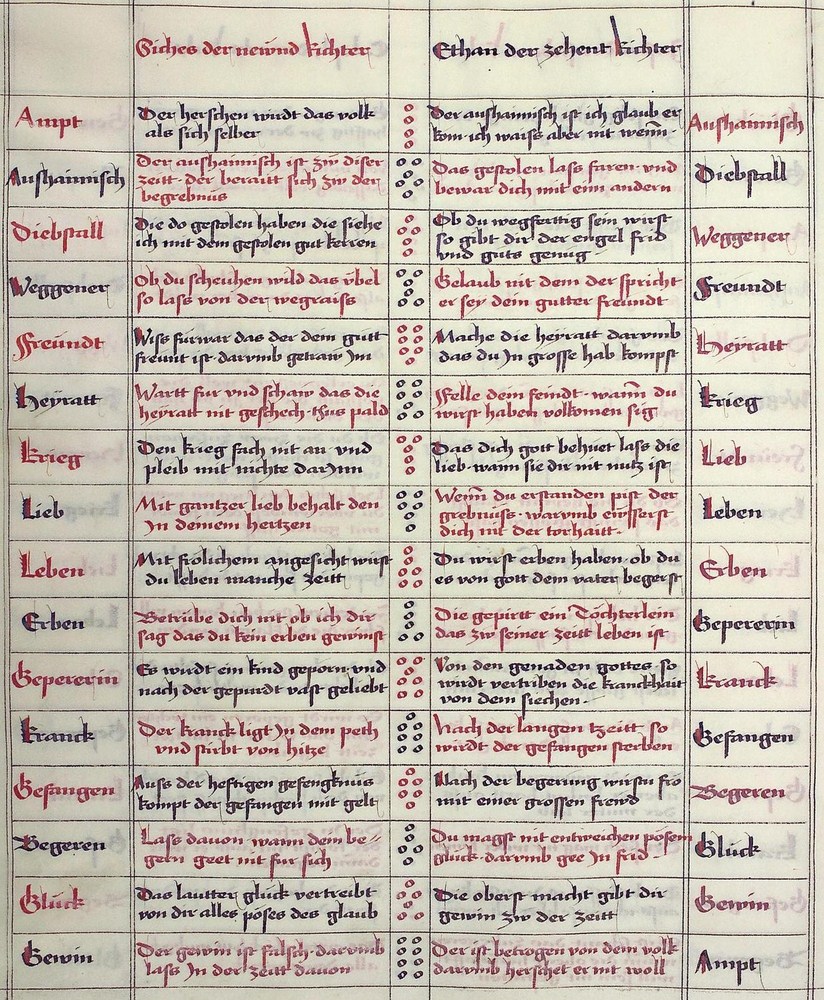 Siches der newnd Richter
Ethan der zehent Richter
Ampt
Der herschen wirdt das volk
als sich selber
Der aushaimisch ist ich glaub er
kom ich waiss aber nit wenn.
Aushaimisch
Aushaimisch
Der aushaimisch ist zw diser
zeitt. der beraitt sich zw der
begrebnüs
Das gestolen lass faren. vnd
bewar dich mit eim andern
Diebstall
Diebstall
Die do gestolen haben die siehe
ich mit dem gestolen gut keren
Ob du wegferttig sein wirst
so gibt dir der engel frid
vnd guts genug.
Weggener
Weggener
Ob du scheuhen wild das übel
so lass von der wegraiss
Gelaub nit dem der spricht
er sey dein gutter freundt
Freundt
Freündt
Wiss fürwar das der dein gutt
freunt ist. darvmb getraw Im
Mache die heyratt darvmb
das du In grosse hab kompst
Heyratt
Heyratt
Wartt fur vnd schaw das die
heyratt nit geschech. thus pald
Felle dem feindt. wann du
wirst haben volkomen sig
Krieg
Krieg
Den krieg fach nit an vnd
pleib mit nichte darInn
Das dich gott behuet lass die
lieb. wann sie dir nit nutz ist
Lieb
Lieb
Mit gantzer lieb behalt den
In deinem hertzen
Wenn du erstanden pist der
grebnüss. warvmb
dich nit der torhaitt.
Leben
Leben
Mit frölichem angesicht wirst
du leben manche zeitt
Du wirst erben haben. ob du
es von gott dem vater begerst
Erben
Erben
Betrübe dich nit ob ich dir
sag das du kein erben gewinst
Die gepirtt ein Töchterlein
das zw seiner zeitt leben ist
Gepererin
Gepererin
Es wirdt ein kind geporn. vnd
nach der gepurdt vast geliebt
Von den genaden gottes so
wirdt vertriben die kranckhait
von dem siechen.
Kranck
Kranck
Der kranck ligt In dem peth
vnd stirbt von hitze
Nach der langen tzeitt so
wirdt der gefangen sterben
Gefangen
Gefangen
Auss der hefftigen gefengknüs
kompt der gefangen mit gelt
Nach der begerung wirstu fro
mit einer grossen frewd
Begeren
Begeren
Lass davon wann dein be=
gern geet nit fur sich
Du magst nit entweichen posem
glück. darvmb gee In frid.
Glück
Glück
Das lautter glück vertreibt
von dir alles poses des glaub
Die oberst macht gibt dir
gewin zw der zeitt
Gewin
Gewin
Der gewin ist falsch. darvmb
lass In der zeitt davon
Der ist betrogen von dem volk
darvmb herschet er nit woll
Ampt